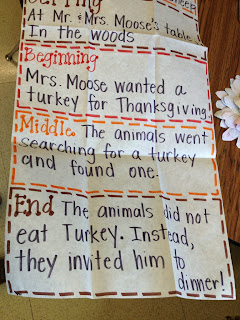 Setting
At Mr. & Mrs. Moose's table
In the woods
Beginning
Mrs. Moose wanted a
turkey for Thanksgiving.
Middle The animals went
searching for a turkey
and found one.
End The animals did not
eat Turkey. Instead,
they invited him to
dinner!